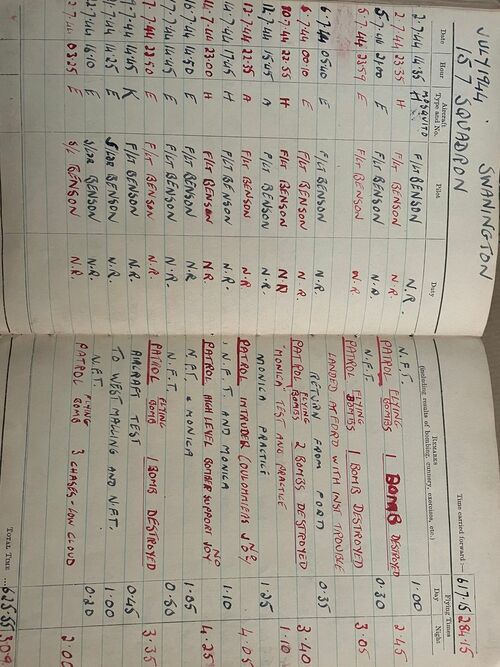 JULY 1944 SWANNINGTON
157 SQUADRON
Time carried forward:— 617.15 284.15
Date Hour Aircraft Type and No. Pilot Duty Remarks (including results of bombing, gunnery, exercises, etc.) Flying Times Day Night
2.7.44 14.35 MOSQUITO H F/LT BENSON N.R. N.F.T. 1.00
2.7.44 23.35 H F/LT BENSON N.R. PATROL FLYING BOMBS 1 BOMB DESTROYED 2.45
5.7.44 21.00 E F/LT BENSON N.R. N.F.T. 0.30
5.7.44 23.59 E F/LT BENSON N.R. PATROL FLYING BOMBS 1 BOMB DESTROYED 3.05
LANDED AT FORD WITH INST TROUBLE
6.7.44 05.40 E F/LT BENSON N.R. RETURN FROM FORD 0.35
00.10 E F/LT BENSON N.R. PATROL FLYING BOMBS 2 BOMBS DESTROYED 3.40
10.7.44 22.55 H F/LT BENSON N.R MONICA TEST AND PRACTICE 1.10
12.7.44 15.45 A F/LT BENSON N.R. MONICA PRACTICE 1.25
12.7.44 22.35 A F/LT BENSON N.R PATROL INTRUDER (COULOMMIERS NO JOY) 4.05
14.7.44 17.45 H F/LT BENSON N.R. N.F.T. AND MONICA 1.10
14.7.44 23.00 H F/LT BENSON N.R PATROL HIGH LEVEL BOMBER SUPPORT NO JOY 4.25
7.44 14.50 E F/LT BENSON N.R. N.F.T. & MONICA 1.05
7.44 16.45 E F/LT BENSON N.R. N.F.T. 0.50
7.44 22.50 E F/LT BENSON N.R. PATROL FLYING BOMB 1 BOMB DESTROYED 3.35
7.44 14.45 K F/LT BENSON N.R. AIRCRAFT TEST 0.45
7.44 14.25 E S/LDR BENSON N.R. TO WEST MALLING AND N.F.T. 1.00
7.44 16.10 E S/LDR BENSON N.R. N.F.T. 0.20
7.44 03.25 E S/L BENSON N.R. PATROL FLYING BOMB 3 CHASES - LOW CLOUD 2.00
TOTAL TIME ... 625.55